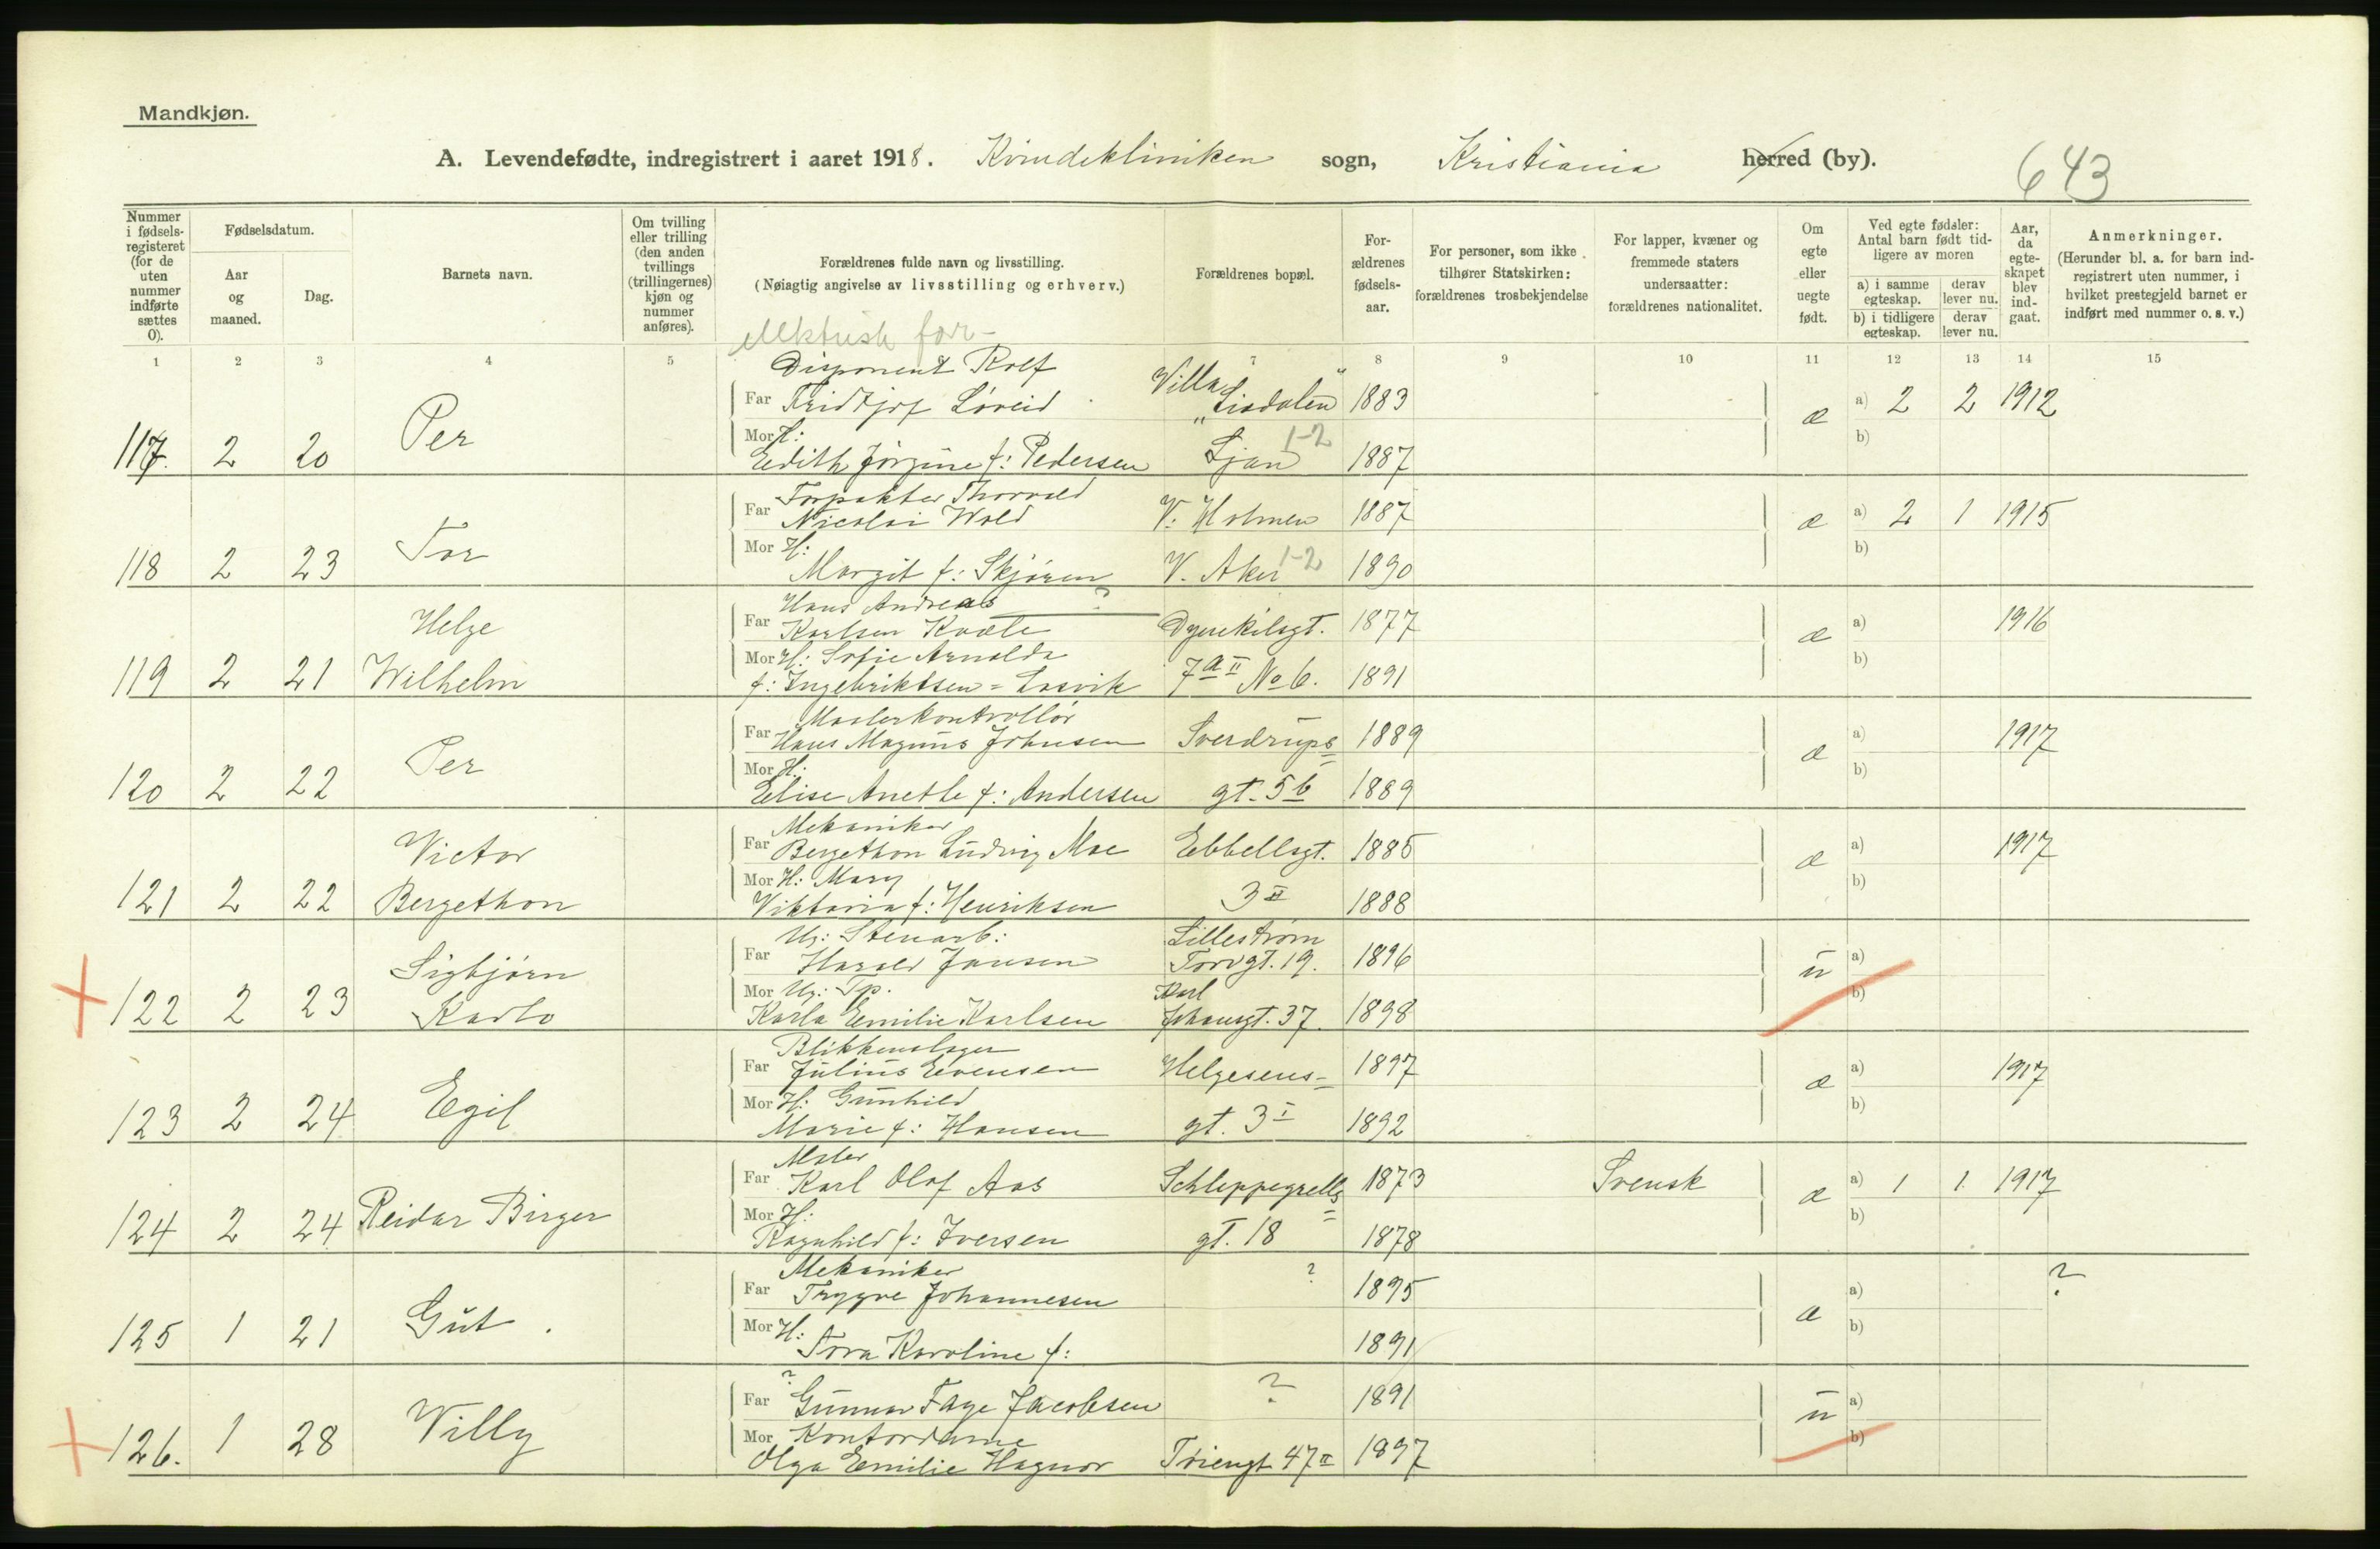 Mandkjøn.
A. Levendefødte, indregistrert i aaret 1918. Kvindekliniken sogn, Kristiania herred (by).
643
Nummer i fødselsregisteret (for de uten nummer indførte sættes 0).
Fødselsdatum.
Aar og maaned.
Dag.
Barnets navn.
Om tvilling eller trilling (den anden tvillings (trillingernes) kjøn og nummer anføres).
Forældrenes fulde navn og livsstilling.
(Nøiagtig angivelse av livsstilling og erhverv.)
Forældrenes bopæl.
Forældrenes fødselsaar.
For personer, som ikke tilhører Statskirken: forældrenes trosbekjendelse
For lapper, kvæner og fremmede staters undersaatter: forældrenes nationalitet.
Om egte eller uegte født.
Ved egte fødsler: Antal barn født tidligere av moren
a) i samme egteskap.
derav lever nu.
b) i tidligere egteskap.
derav lever nu.
Aar, da egteskapet blev indgaat.
Anmerkninger.
(Herunder bl. a. for barn indregistrert uten nummer, i hvilket prestegjeld barnet er indført med nummer o. s. v.)
1 2 3 4 5 6 7 8 9 10 11 12 13 14 15
Disponent Rolf
Far Fridtjof Løveid Villa "Lisdalen" 1883 æ a) 2 2 1912
117. 2 20 Per
Mor H: b)
Edith Jørgine f: Pedersen Ljan 1-2 1887
Forpakter Thorvald
Far Nicolai Wold V. Holmen 1887 æ a) 2 1 1915
118 2 23 Tor
Mor H: b)
Margit f: Skjøren V. Aker 1-2 1890
Hans Andreas ?
Far Karlsen Kvæle Dynekilsgt. 1877 æ a) 1916
119 2 21 Helge Wilhelm
Mor H: Sofie Arnolda b)
f: Ingebriktsen = Losvik 7a II No 6. 1891
Maalerkontrollør
Far Hans Magnus Johnsen Sverdrups= 1889 æ a) 1917
120 2 22 Per
Mor H: b)
Elise Anethe f: Andersen gt. 5b 1889
Mekaniker
Far Bergethon Ludvig Moe Ebbellsgt. 1885 æ a) 1917
121 2 22 Victor Bergethon
Mor H: Mary b)
Viktoria f: Henriksen 3 II 1888
Ug: Stenarb: Lillestrøm
Far Harald Jansen Torvgt. 19. 1896 ü a)
122 2 23 Sigbjørn Karlo
Mor Ug: Tp. Karl b)
Karla Emilie Karlsen Johansgt. 37. 1898
Blikkenslager
Far Julius Evensen Helgesens- 1897 æ a) 1917
123 2 24 Egil
Mor H: Gunhild b)
Marie f: Hansen gt. 3 I 1892
Maler
Far Karl Olof Aas Schleppegrells= 1873 Svensk æ a) 1 1 1917
124 2 24 Reidar Birger
Mor H: b)
Ragnhild f: Iversen gt. 18 1878
Mekaniker ?
Far Trygve Johannesen 1895 æ a) ?
125 1 21 Gut.
Mor H: b)
Tora Karoline f: 1891
?
Far Gunnar Faye Jacobsen ? 1891 ü a)
126. 1 28 Willy
Mor Kontordame b)
Olga Emilie Hagnor Trøiengt 47 II 1897